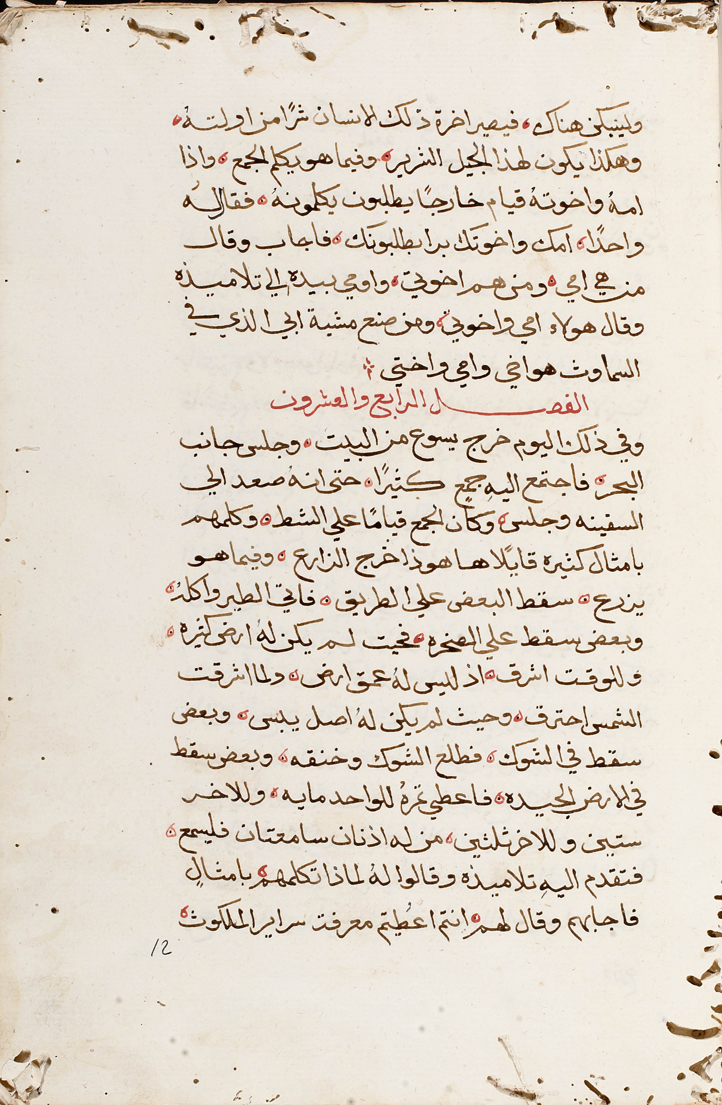 وليتبكن هناك، فيصير اخرة ذلك الانسان شرًا من اولته،
وهكذا يكون لهذا الجيل الشرير، وفيما هو يكلم الجمع، واذا
امهُ واخوتهُ قيام خارجًا يطلبون يكلمونهُ، فقال لهُ
واحدًا، امك واخوتك برا يطلبونك، فاجاب وقال
من هي امي، ومن هم اخوتي، واومي بيده الي تلاميذه
وقال هولاء امي واخوتي، ومن صنع مشية ابي الذي في
السماوت هو اخي وامي واختي
الفصل الرابع والعشرون
وفي ذلك اليوم خرج يسوع من البيت، وجلس جانب
البحر، فاجتمع اليهِ جمع كثيرًا، حتى انهُ صعد الي
السفينه وجلس، وكان الجمع قيامًا علي الشط، وكلمهم
بامثال كثيرة قايلًا ها هوذا خرج الزارع، وفيما هو
يزرع، سقط البعض علي الطريق، فاتي الطير واكلهُ،
وبعض سقط علي الصخره، فحيت لم يكن لهُ ارض كثيره،
وللوقت اشرق، اذ ليس لهُ عمق ارض، ولما اشرقت
الشمس احترق، وحيث لم يكن لهُ اصل يبس، وبعض
سقط في الشوك، فطلع الشوك وخنقه، وبعض سقط
في الارض الجيده، فاعطي ثمرةً للواحد مايه، وللاخر
ستين وللاخر ثلثين، من له اذنان سامعتان فليسمع،
فتقدم اليهِ تلاميذه وقالوا لهُ لماذا تكلمهم، بامثالٍ
فاجابهم وقال لهم، انتم اعُطيتم معرفت سراير الملكوت،
12